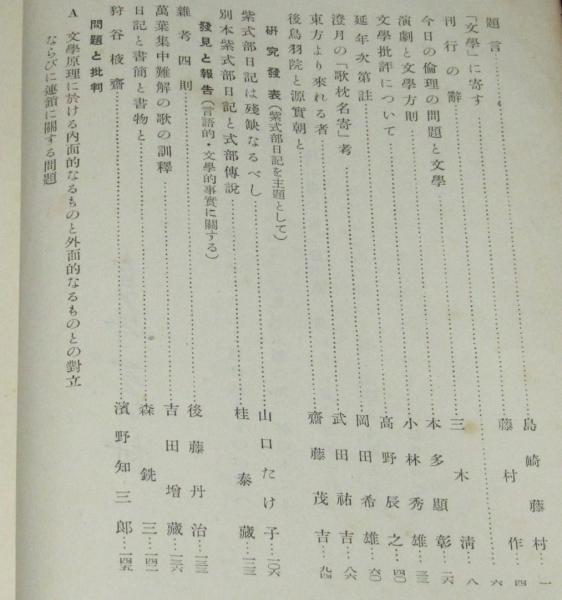 題言……島崎藤村…一
「文學」に寄す……藤村作…四
刊行の辭……六
今日の倫理の問題と文學……三木清…八
演劇と文學方則……本多顯彰…二六
文學批評について……小林秀雄…三三
延年次第註……高野辰之…四〇
澄月の「歌枕名寄」考……岡田希雄…六〇
東方より來れる者……武田祐吉…八六
後鳥羽院と源實朝と……齋藤茂吉…九四
研究發表(紫式部日記を主題として)
紫式部日記は殘缺なるべし……山口たけ子…一〇六
別本紫式部日記と式部傳說……桂泰藏
發見と報告(言語的・文學的事實に關する)
雜考四則……後藤丹治
萬葉集中難解の歌の訓釋……吉田增藏
日記と書簡と書物と……森銑三…一四一
狩谷棭齋……濱野知三郎…一四五
問題と批判
A 文學原理に於ける內面的なるものと外面的なるものとの對立
ならびに連鎖に關する問題